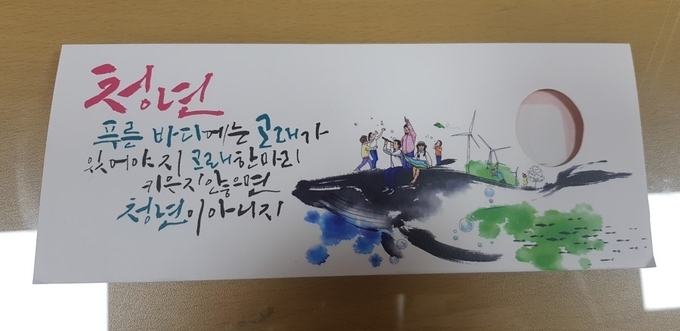 청년
푸른 바다에는 고래가
있어야지 고래한마리
키우지않으면
청년이아니지